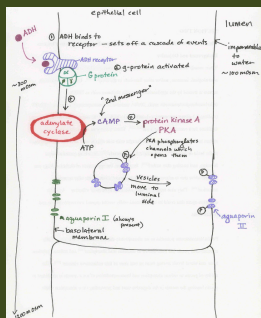 epithelial cell
lumen
ADH
① ADH binds to
receptor — sets off a cascade of events
ADH receptor
② g-protein activated
G protein
impermeable
to
water
~100 mosm
~300
mosm
"2nd messenger"
adenylate
cyclase
cAMP
protein kinase A
PKA
ATP
PKA phosphorylates
channels which
opens them
vesicles
move to
luminal
side
aquaporin I (always
present)
basolateral
membrane
aquaporin
II
1200 mosm